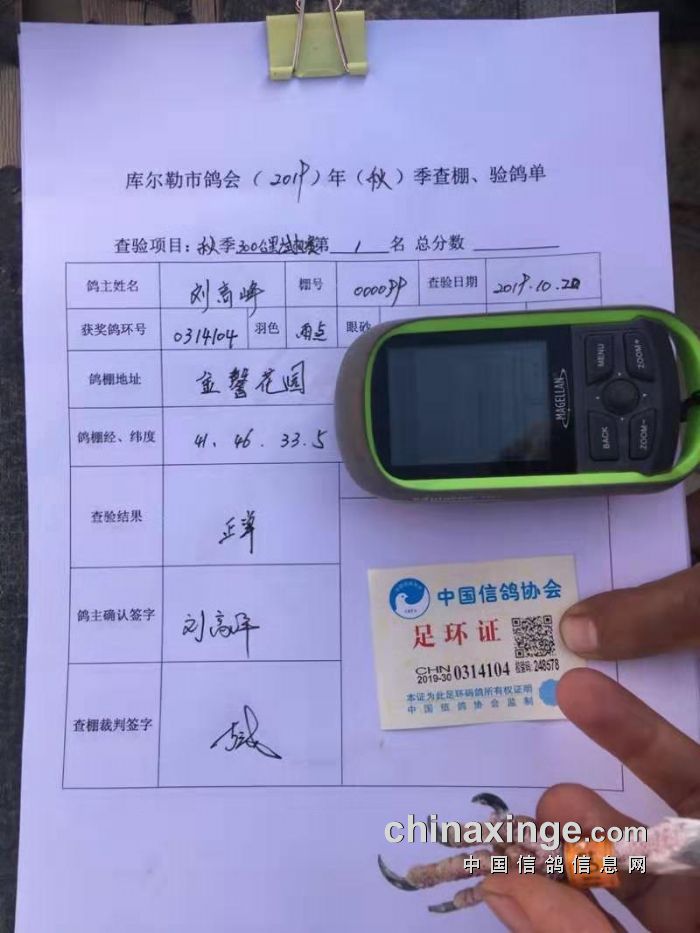 库尔勒市鸽会（2019）年（秋）季查棚、验鸽单
查验项目：秋季300公里决赛第 1 名 总分数
鸽主姓名 刘高峰 棚号 000099 查验日期 2019.10.20
获奖鸽环号 0314104 羽色 雨点 眼砂
鸽棚地址 金馨花园
鸽棚经、纬度 41. 46. 33.5
查验结果 正常
鸽主确认签字 刘高峰
查棚裁判签字
MAGELLAN
MENU
ZOOM+
BACK
ZOOM-
中国信鸽协会
足环证
CHN
2019-30 0314104 检查码: 248578
本证为此足环码鸽所有权证明
中国信鸽协会监制
chinaxinge.com
中国信鸽信息网